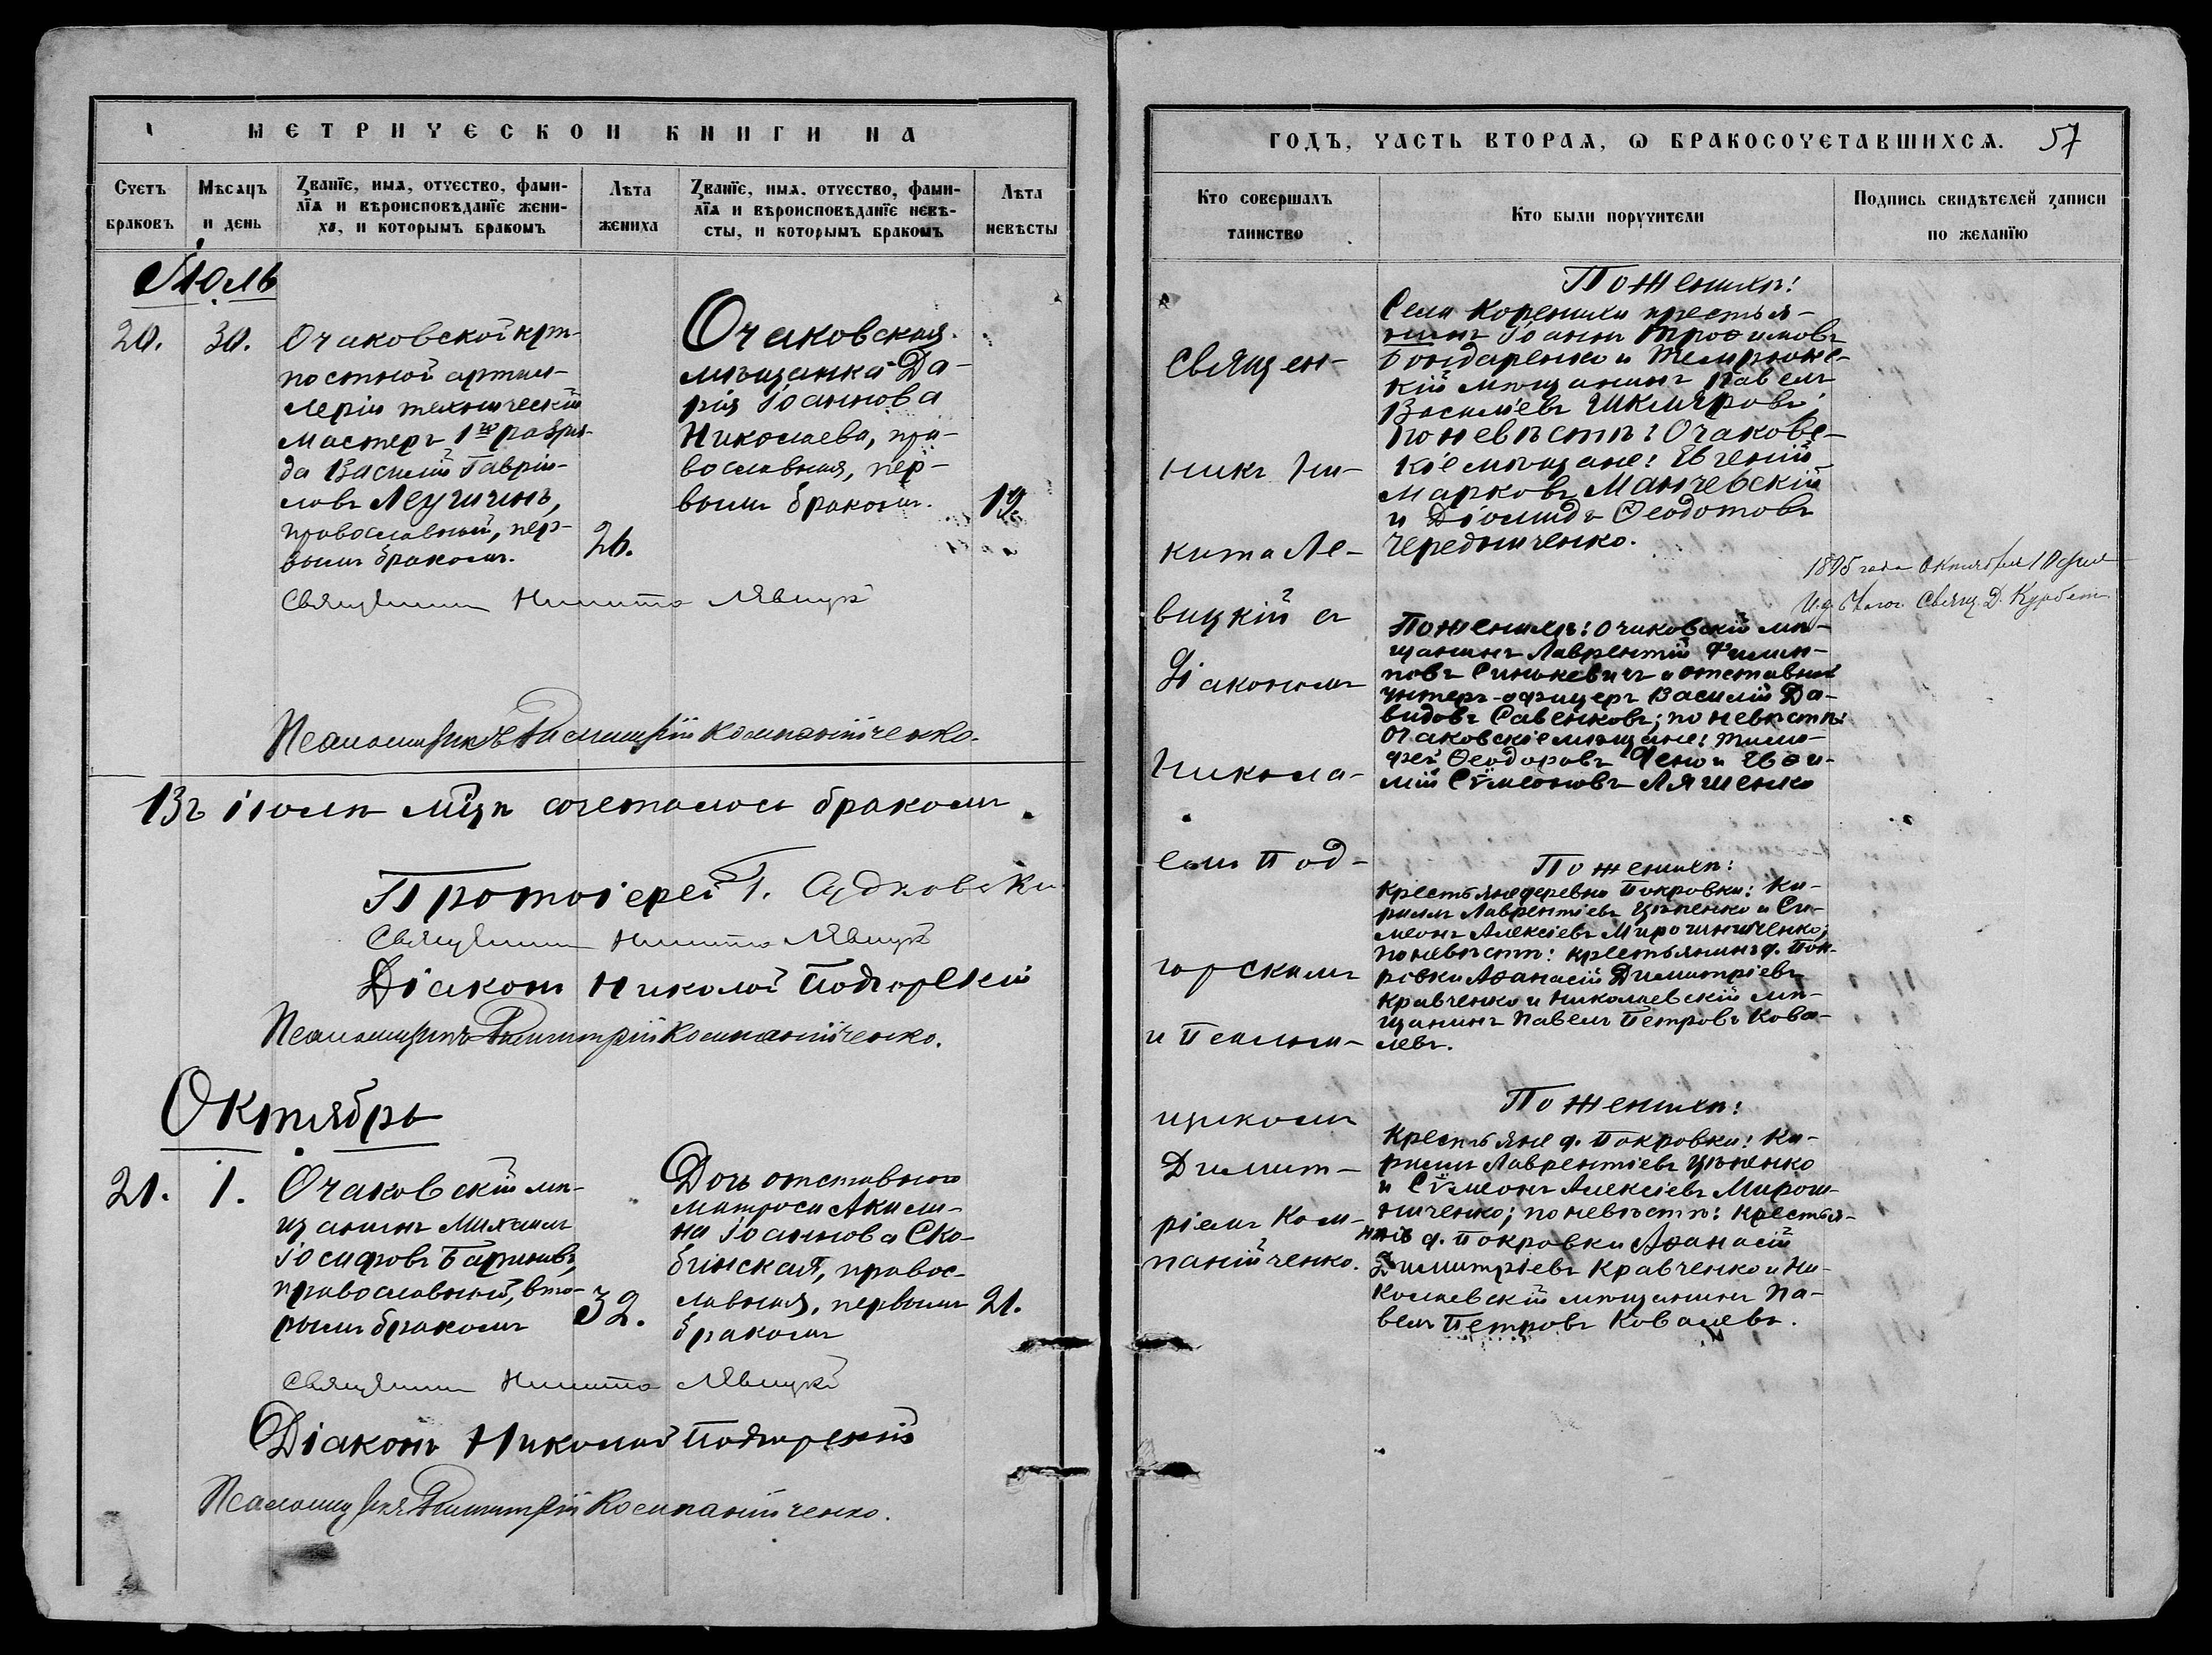 МЕТРИЧЕСКОЙ КНИГИ НА
Счетъ браковъ
Мѣсяцъ и день
Званїе, имя, отчество, фами-
лїя и вѣроисповѣданїе жени-
ха, и которымъ бракомъ
Лѣта жениха
Званїе, имя, отчество, фами-
лїя и вѣроисповѣданїе невѣ-
сты, и которымъ бракомъ
Лѣта невѣсты
Іюль
20.
30.
Очаковской крѣ-
постной артил-
леріи техническій
мастеръ 1го разря-
да Василій Гаврiи-
ловъ Леушинъ,
православный, пер-
вымъ бракомъ.
26.
Очаковская
мѣщанка Да-
рія Іоаннова
Николаева, пра-
вославная, пер-
вымъ бракомъ.
19.
Священникъ Никита Левицкій
Псаломщикъ Димитрій Компанійченко.
Въ іюлѣ мцѣ сочеталось бракомъ
Протоіерей Г. Судковскій
Священникъ Никита Левицкій
Діаконъ Николай Подгорскій
Псаломщикъ Димитрій Компанійченко.
Октябрь
21.
1.
Очаковскій мѣ-
щанинъ Михаилъ
Іосифовъ Бариновъ,
православный, вто-
рымъ бракомъ
32.
Дочь отставного
матроса Акили-
на Іоаннова Ско-
бинская, правос-
лавная, первымъ
бракомъ
21.
Священникъ Никита Левицкій
Діаконъ Николай Подгорскій
Псаломщикъ Димитрій Компанійченко.
ГОДЪ, ЧАСТЬ ВТОРАЯ, Ѡ БРАКОСОЧЕТАВШИХСЯ.
57
Кто совершалъ таинство
Кто были поручители
Подпись свидѣтелей записи
по желанїю
Священ-
никъ Ни-
кита Ле-
вицкій съ
Діакономъ
Никола-
емъ Под-
горскимъ
и Псалом-
щикомъ
Димит-
ріемъ Ком-
панійченко.
По женихѣ:
Села Коренихи крестья-
нинъ Іоаннъ Трофимовъ
Бондаренко и Темрюкс-
кій мѣщанинъ Павелъ
Василіевъ Шкляровъ;
по невѣстѣ: Очаковс-
кіе мѣщане: Евгеній
Марковъ Манчевскій
и Діомидъ Ѳеодотовъ
Чередниченко.
1895 года Октября 10 дня
И. д. Благоч. Свящ. Д. Курбет
По женихѣ: Очаковскій мѣ-
щанинъ Лаврентій Филип-
повъ Синькевичъ и отставной
унтеръ-офицеръ Василій Да-
видовъ Савенковъ; по невѣстѣ:
Очаковскіе мѣщане: Тимо-
фей Ѳеодоровъ Ченю и Евѳи-
мій Сѵмеоновъ Ляшенко
По женихѣ:
Крестьяне деревни Покровки: Ки-
риллъ Лаврентіевъ Цѣпенко и Си-
меонъ Алексіевъ Мирошниченко;
по невѣстѣ: крестьянинъ д. Пок-
ровки Аѳанасій Димитріевъ
Кравченко и Николаевскій мѣ-
щанинъ Павелъ Петровъ Кова-
левъ.
По женихѣ:
Крестьяне д. Покровки: Ки-
риллъ Лаврентіевъ Цѣпенко
и Сѵмеонъ Алексіевъ Мирош-
ниченко; по невѣстѣ: крестья-
нинъ д. Покровки Аѳанасій
Димитріевъ Кравченко и Ни-
колаевскій мѣщанинъ Па-
велъ Петровъ Ковалевъ.